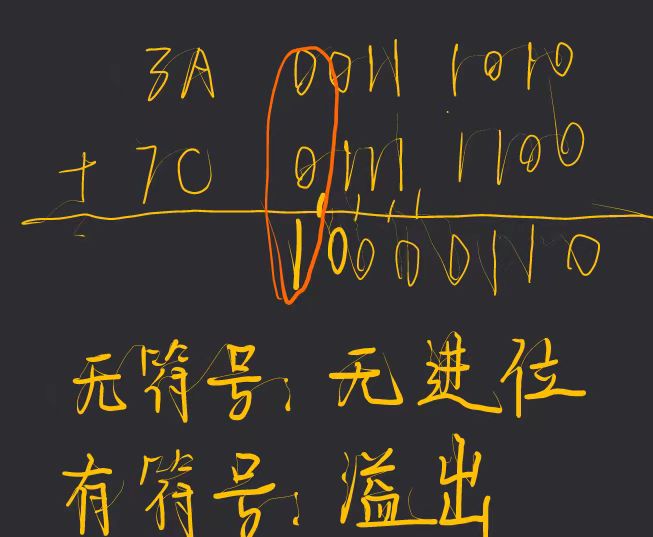 3A 0011 1010
+ 7C 0111 1100
10000110
无符号: 无进位
有符号: 溢出